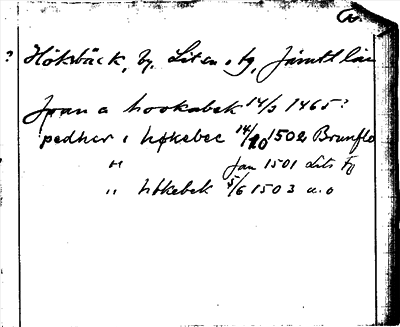 ? Hökbäck, by, Lits sn o tg, Jämtl. län
Jpan a hookabek 14/3 1465?
pedher i høkebec 14/10 1502 Brunflo
" Jan 1501 Lits tg
" høkebek 5/6 1503 a.o